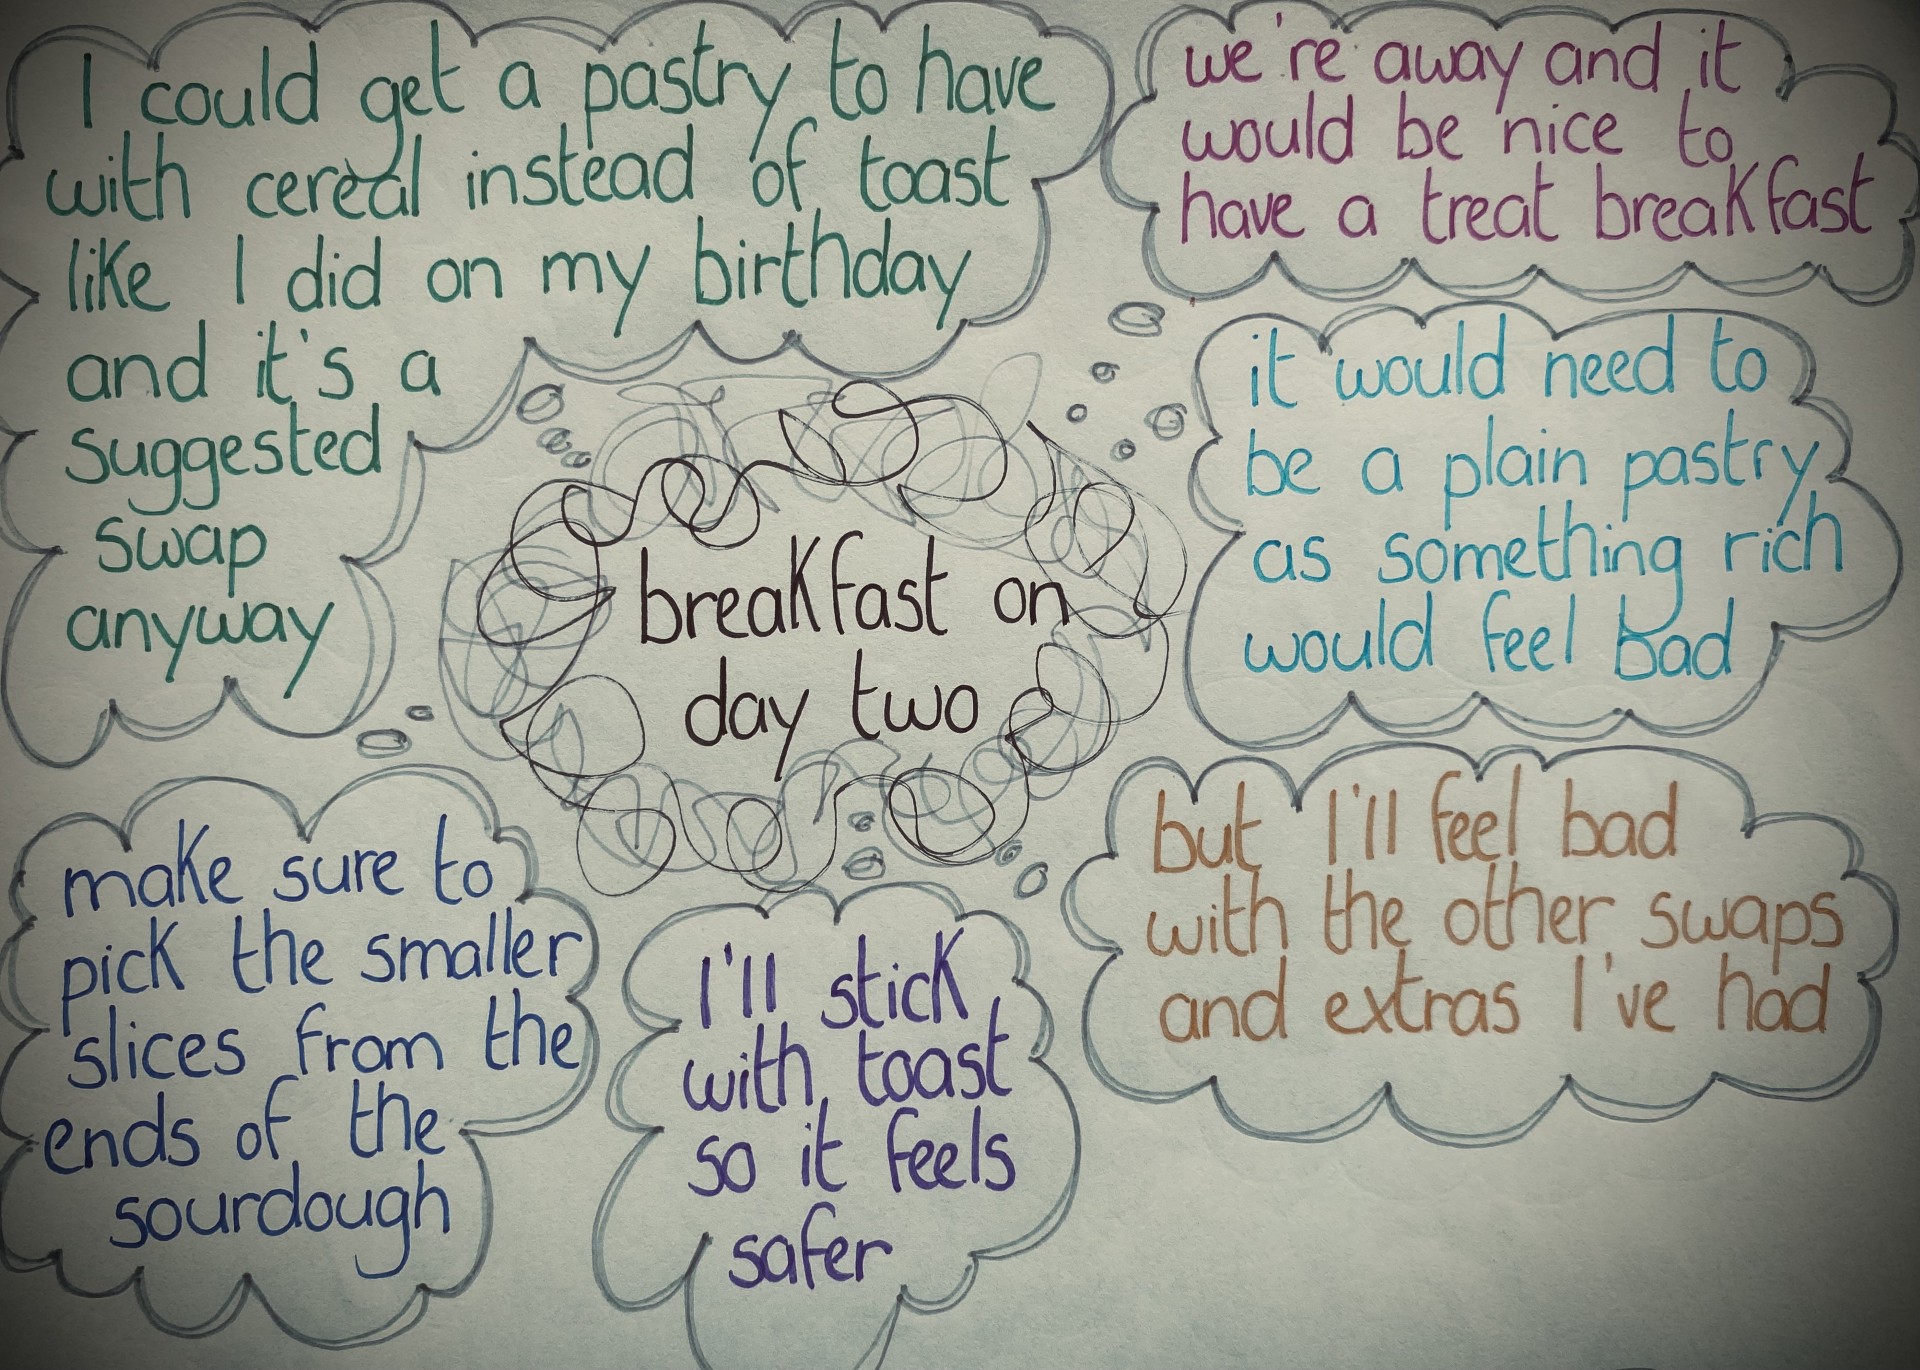 I could get a pastry to have
with cereal instead of toast
like I did on my birthday
and it's a
suggested
swap
anyway
we're away and it
would be nice to
have a treat breakfast
it would need to
be a plain pastry
as something rich
would feel bad
breakfast on
day two
but I'll feel bad
with the other swaps
and extras I've had
make sure to
pick the smaller
slices from the
ends of the
sourdough
I'll stick
with toast
so it feels
safer